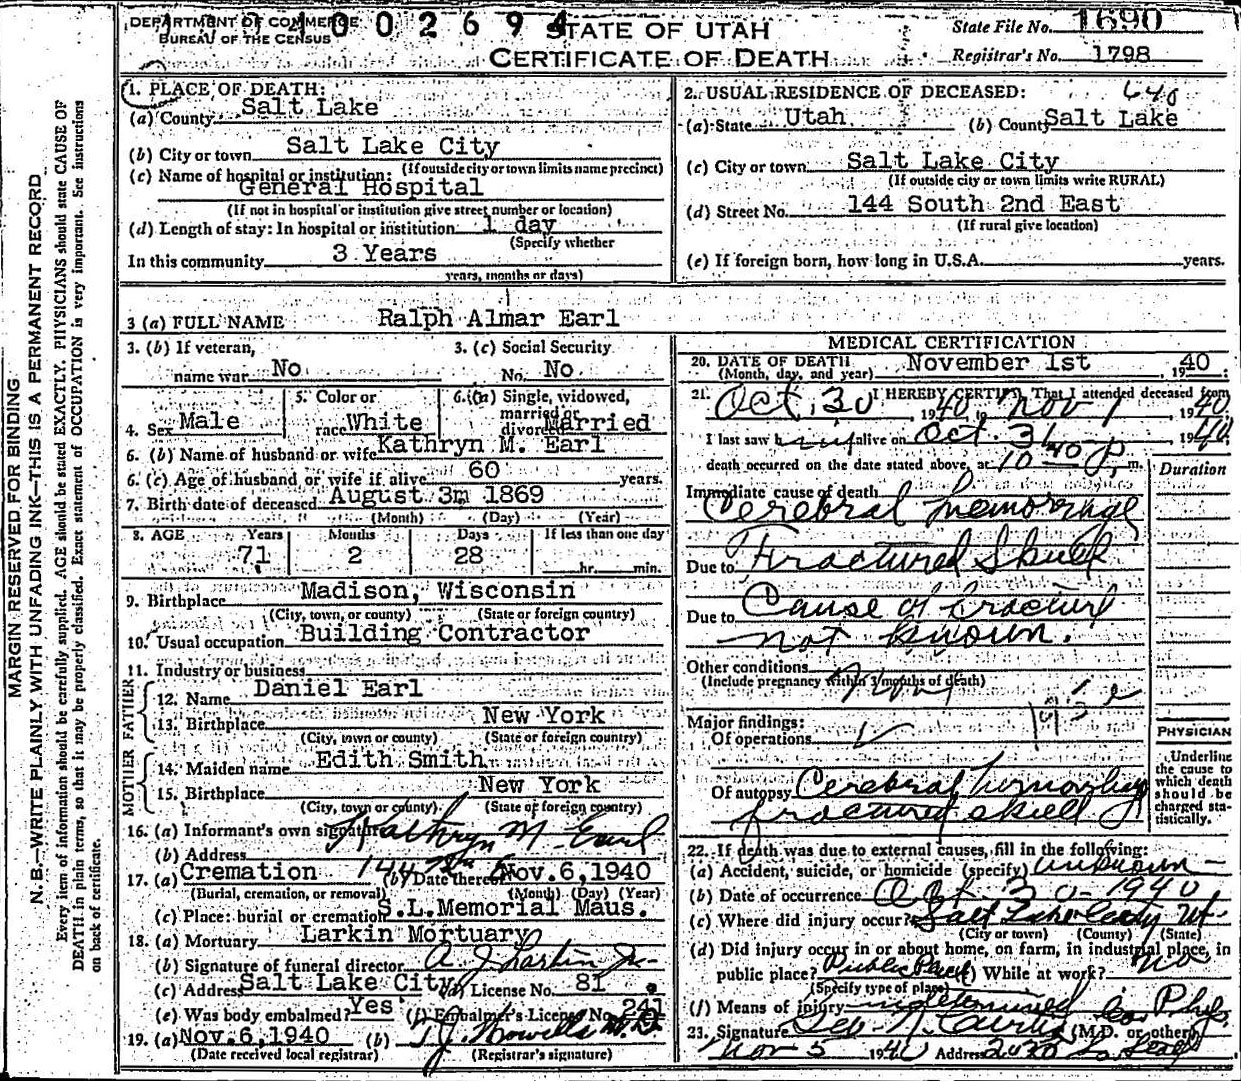 DEPARTMENT OF COMMERCE
BUREAU OF THE CENSUS
4002694
STATE OF UTAH
CERTIFICATE OF DEATH
State File No. 1690
Registrar's No. 1798
MARGIN RESERVED FOR BINDING
N. B.—WRITE PLAINLY WITH UNFADING INK—THIS IS A PERMANENT RECORD
Every item of information should be carefully supplied. AGE should be stated EXACTLY. PHYSICIANS should state CAUSE OF
DEATH in plain terms, so that it may be properly classified. Exact statement of OCCUPATION is very important. See instructions
on back of certificate.
1. PLACE OF DEATH:
(a) County Salt Lake
(b) City or town Salt Lake City
(If outside city or town limits name precinct)
(c) Name of hospital or institution:
General Hospital
(If not in hospital or institution give street number or location)
(d) Length of stay: In hospital or institution 1 day
(Specify whether
In this community 3 Years
years, months or days)
2. USUAL RESIDENCE OF DECEASED: 640
(a) State Utah (b) County Salt Lake
(c) City or town Salt Lake City
(If outside city or town limits write RURAL)
(d) Street No. 144 South 2nd East
(If rural give location)
(e) If foreign born, how long in U.S.A. years.
3 (a) FULL NAME Ralph Almar Earl
3. (b) If veteran,
name war No
3. (c) Social Security
No. No
4. Sex Male
5. Color or
race White
6. (a) Single, widowed,
married or
divorced Married
6. (b) Name of husband or wife Kathryn M. Earl
6. (c) Age of husband or wife if alive 60 years.
7. Birth date of deceased August 3 1869
(Month) (Day) (Year)
8. AGE Years Months Days If less than one day
71 2 28 hr. min.
9. Birthplace Madison, Wisconsin
(City, town, or county) (State or foreign country)
10. Usual occupation Building Contractor
11. Industry or business
FATHER
12. Name Daniel Earl
13. Birthplace New York
(City, town or county) (State or foreign country)
MOTHER
14. Maiden name Edith Smith
15. Birthplace New York
(City, town or county) (State or foreign country)
16. (a) Informant's own signature Kathryn M. Earl
(b) Address 144
17. (a) Cremation (b) Date thereof Nov.6,1940
(Burial, cremation, or removal) (Month) (Day) (Year)
(c) Place: burial or cremation S.L.Memorial Maus.
18. (a) Mortuary Larkin Mortuary
(b) Signature of funeral director A. J. Larkin Jr.
(c) Address Salt Lake City (d) License No. 81
(e) Was body embalmed? Yes (f) Embalmer's License No. 241
19. (a) Nov.6,1940 (b) T. J. Howells M.D.
(Date received local registrar) (Registrar's signature)
MEDICAL CERTIFICATION
20. DATE OF DEATH November 1st, 1940
(Month, day, and year)
21. I HEREBY CERTIFY, That I attended deceased from
Oct. 30 1940, to Nov 1 1940
I last saw him alive on Oct. 31, 1940
death occurred on the date stated above, at 10 40 P. m.
Duration
Immediate cause of death
Cerebral hemorrhage
Due to Fractured Skull
Due to Cause of fracture
not known.
Other conditions
(Include pregnancy within 3 months of death)
Major findings:
Of operations
Of autopsy Cerebral hemorrhage
fractured skull
PHYSICIAN
Underline
the cause to
which death
should be
charged sta-
tistically.
22. If death was due to external causes, fill in the following:
(a) Accident, suicide, or homicide (specify) unknown
(b) Date of occurrence Oct 30 - 1940
(c) Where did injury occur? Salt Lake City Ut.
(City or town) (County) (State)
(d) Did injury occur in or about home, on farm, in industrial place, in
public place? Public Place (e) While at work? No
(Specify type of place)
(f) Means of injury undetermined
23. Signature Geo. N. Curtis (M.D. or other)
Nov 5 1940 Address 2020 So.